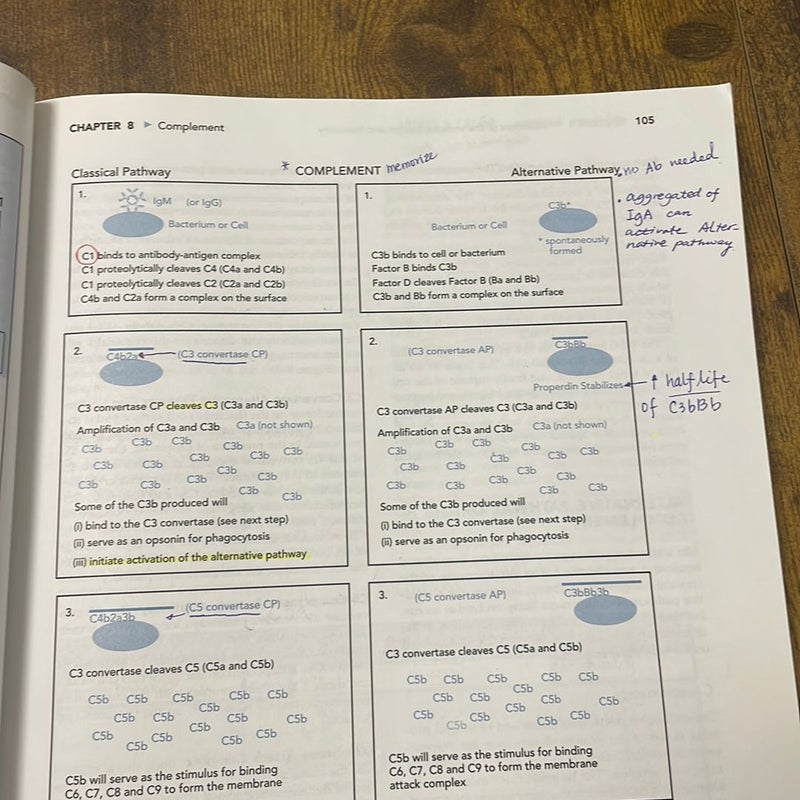 CHAPTER 8 ▶ Complement
105
Classical Pathway
* COMPLEMENT memorize
Alternative Pathway no Ab needed
1.
IgM (or IgG)
Bacterium or Cell
C1 binds to antibody-antigen complex
C1 proteolytically cleaves C4 (C4a and C4b)
C1 proteolytically cleaves C2 (C2a and C2b)
C4b and C2a form a complex on the surface
1.
C3b*
Bacterium or Cell
* spontaneously
formed
C3b binds to cell or bacterium
Factor B binds C3b
Factor D cleaves Factor B (Ba and Bb)
C3b and Bb form a complex on the surface
• aggregated of
IgA can
activate Alter-
native pathway.
2.
C4b2a (C3 convertase CP)
C3 convertase CP cleaves C3 (C3a and C3b)
Amplification of C3a and C3b C3a (not shown)
C3b C3b C3b C3b C3b C3b
C3b C3b C3b C3b
C3b C3b C3b C3b
C3b C3b
Some of the C3b produced will
(i) bind to the C3 convertase (see next step)
(ii) serve as an opsonin for phagocytosis
(iii) initiate activation of the alternative pathway
2.
(C3 convertase AP)
C3bBb
Properdin Stabilizes
↑ half life
of C3bBb
C3 convertase AP cleaves C3 (C3a and C3b)
Amplification of C3a and C3b C3a (not shown)
C3b C3b C3b C3b C3b C3b
C3b C3b C3b C3b
C3b C3b C3b C3b
C3b C3b
Some of the C3b produced will
(i) bind to the C3 convertase (see next step)
(ii) serve as an opsonin for phagocytosis
3.
C4b2a3b (C5 convertase CP)
C3 convertase cleaves C5 (C5a and C5b)
C5b C5b C5b C5b C5b
C5b C5b C5b C5b C5b
C5b C5b C5b C5b
C5b C5b
C5b will serve as the stimulus for binding
C6, C7, C8 and C9 to form the membrane
3.
(C5 convertase AP)
C3bBb3b
C3 convertase cleaves C5 (C5a and C5b)
C5b C5b C5b C5b C5b
C5b C5b C5b C5b C5b
C5b C5b C5b C5b
C5b C5b
C5b will serve as the stimulus for binding
C6, C7, C8 and C9 to form the membrane
attack complex